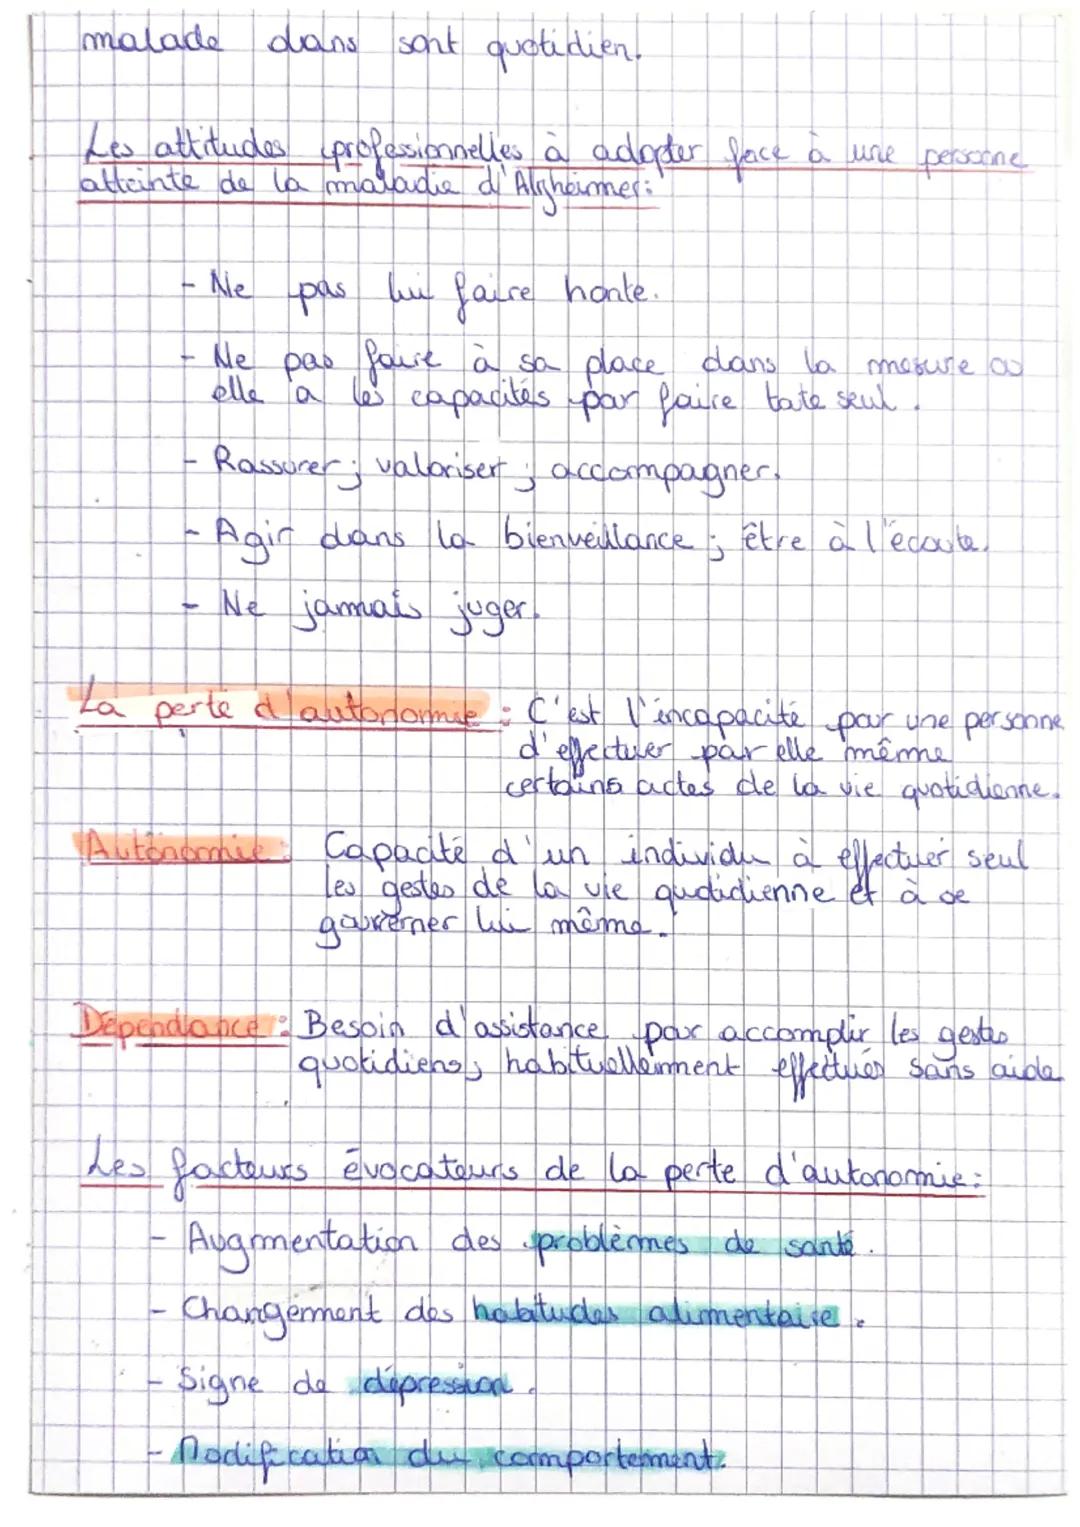 malade dans sont quotidien.
Les attitudes professionnelles à adopter face à une personne
atteinte de la maladie d'Alzheimer:
- Ne pas lui faire honte.
- Ne pas faire à sa place dans la mesure où
elle a les capacités par faire toute seul.
- Rassurer ; valoriser ; accompagner.
- Agir dans la bienveillance ; être à l'écoute.
- Ne jamais juger.
La perte d'autonomie : C'est l'incapacité pour une personne
d'effectuer par elle même
certains actes de la vie quotidienne.
Autonomie : Capacité d'un individu à effectuer seul
les gestes de la vie quotidienne et à se
gouverner lui même.
Dépendance : Besoin d'assistance pour accomplir les gestes
quotidiens, habituellement effectués sans aide
Les facteurs évocateurs de la perte d'autonomie :
- Augmentation des problèmes de santé.
- Changement des habitudes alimentaire.
- Signe de dépression.
- Modification du comportement.